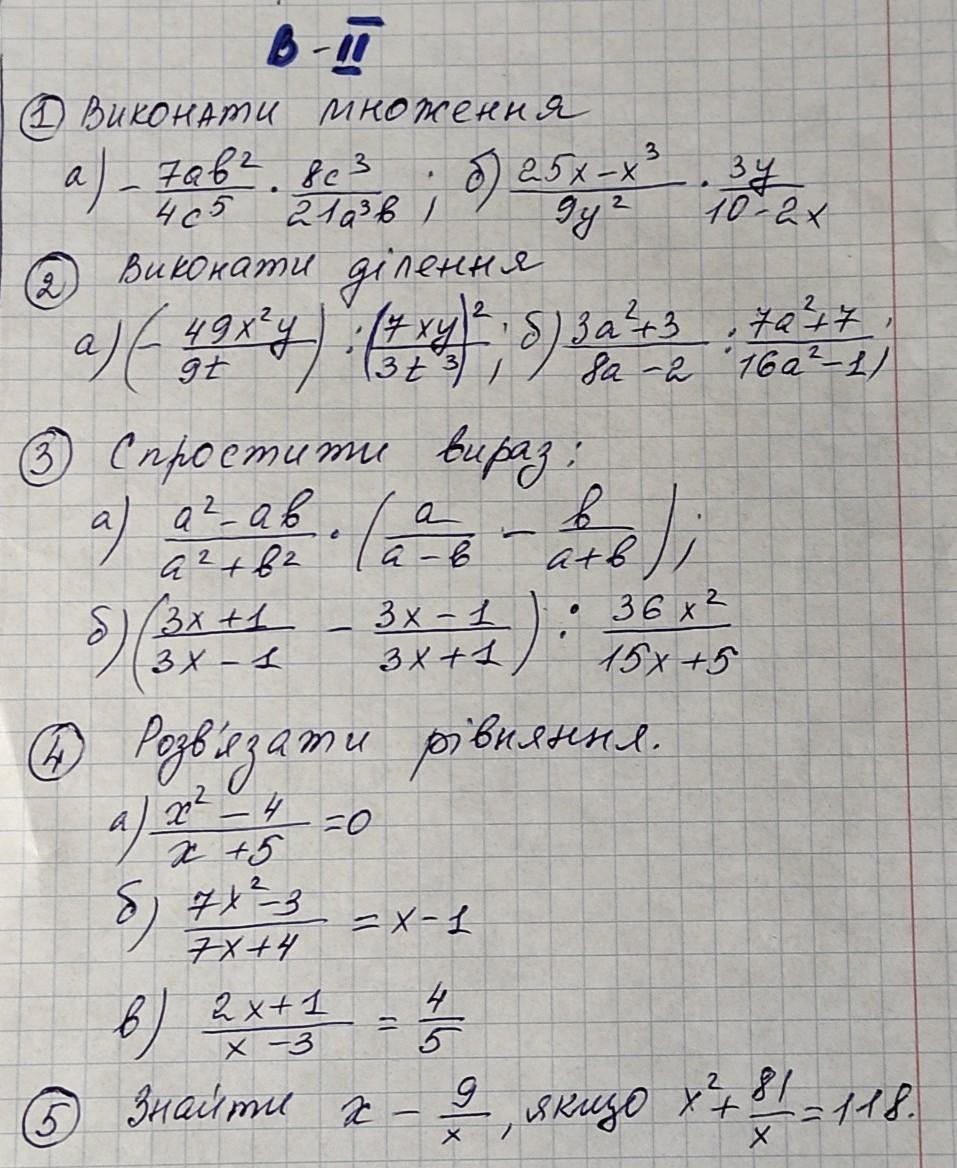 В - II
① Виконати множення
а) - 7ab²/4c⁵ · 8c³/21a³b ; б) 25x-x³/9y² · 3y/10-2x
② Виконати ділення
а) (- 49x²y/9t) : (7xy/3t³)² ; б) 3a²+3/8a-2 : 7a²+7/16a²-1 ;
③ Спростити вираз:
а) a²-ab/a²+b² · (a/a-b - b/a+b) ;
б) (3x+1/3x-1 - 3x-1/3x+1) : 36x²/15x+5
④ Розв'язати рівняння.
а) x²-4/x+5 =0
б) 7x²-3/7x+4 = x-1
в) 2x+1/x-3 = 4/5
⑤ Знайти x - 9/x , якщо x²+81/x=118.